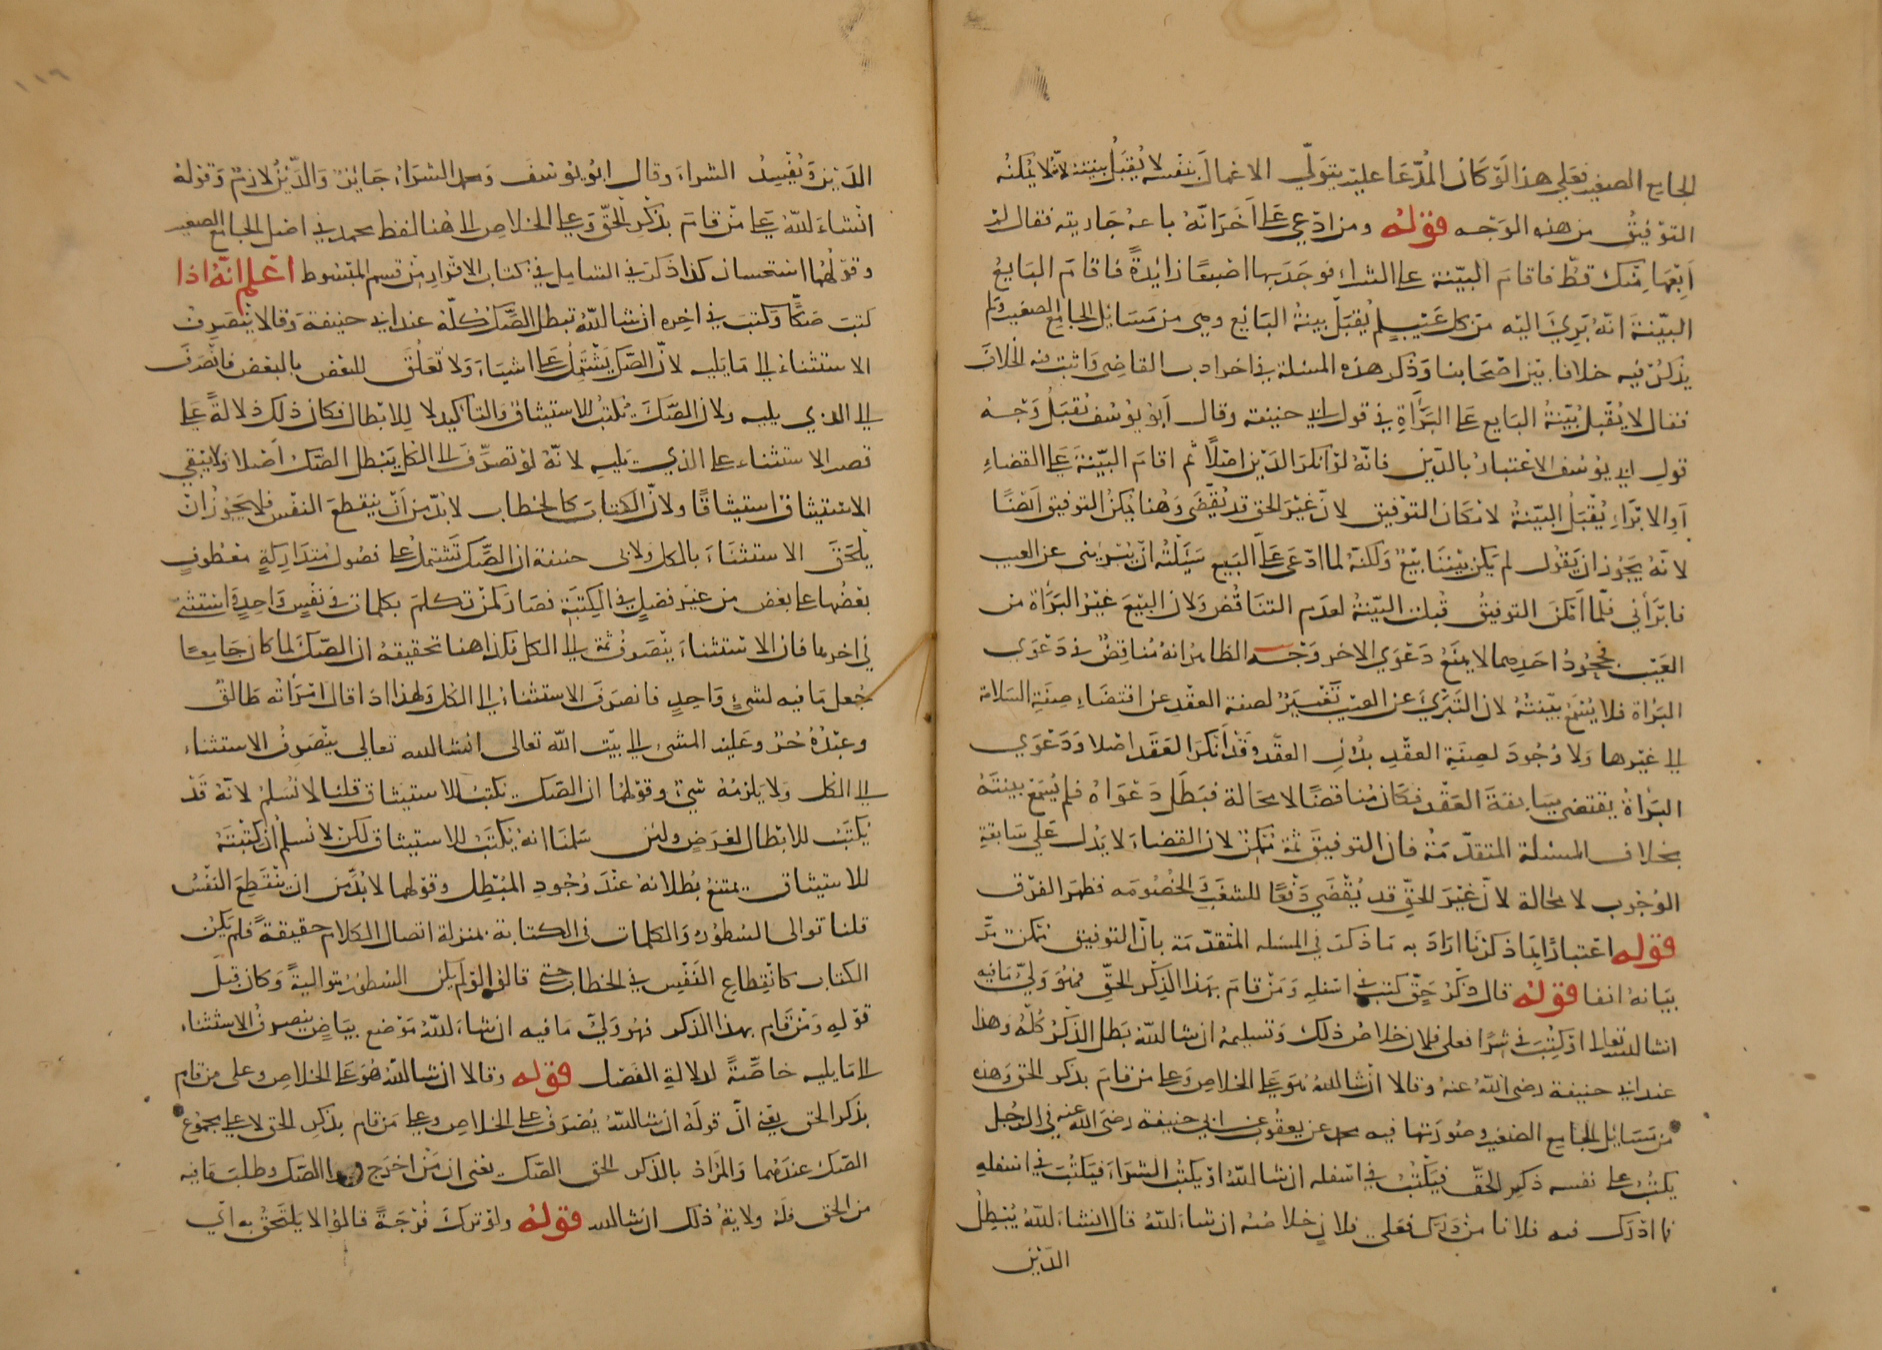 الجامع الصغير فعلى هذا لو كان المدعا عليه يتولى الاعمال بنفسه لا يقبل بينته لانه لا يمكنه
التوفيق من هذه الوجه قوله ومن ادعى على اخر انه باعه جاريته فقال لم
ابعها منك قط فاقام البينة على الشراء فوجد بها اصبعا زائدة فاقام البايع
البينة انه برئ اليه من كل عيب لم يقبل بينة البائع وهي من مسائل الجامع الصغير ولم
يذكر فيه خلافا بين اصحابنا وذكر هذه المسئلة في اخر ادب القاضي واثبت فيه الخلاف
فقال لا يقبل بينة البايع على البراة في قول ابي حنيفة وقال ابو يوسف تقبل وجه
قول ابي يوسف الاعتبار بالدين فانه لو انكر الدين اصلا ثم اقام البينة على القضاء
او الابراء يقبل البينة لامكان التوفيق لان غير الحق قد يقضى وهنا يمكن التوفيق ايضا
لانه يجوز ان يقول لم يكن بيننا بيع ولكنه لما ادعى على البيع سيلته ان يبريني عن العيب
فابرأني فلما امكن التوفيق قبلت البينة لعدم التناقض ولان البيع غير البراة من
العيب فجحود احدهما لا يمنع دعوى الاخر وجه الظاهر انه مناقض في دعوى
البراة فلا يسمع بينته لان التبري عن العيب تغيير لصفة العقد عن اقتضاء صفة السلامة
الى غيرها ولا وجود لصفة العقد بدون العقد وقد انكر العقد اصلا ودعوى
البراة يقتضي سابقة العقد فكان مناقضا لا محالة فبطل دعواه فلم يسمع بينته
بخلاف المسئلة المتقدمة فان التوفيق ثمة ممكن لان القضاء لا يدل على سابقة
الوجوب لا محالة لان غير الحق قد يقضي دفعا للشغب والخصومه فظهر الفرق
قوله اعتبارا بما ذكرنا اراد به ما ذكر في المسئله المتقدمة بان التوفيق ممكن مر
بيانه انفا قوله قال ذكر حق كتب في اسفله ومن قام بهذا الذكر الحق فهو ولي ما فيه
انشا الله تعالى او كتبت في شرا فعلى فلان خلاص ذلك وتسليمه ان شا الله بطل الذكر كله وهذا
عند ابي حنيفة رضى الله عنه وقالا ان شا الله هو على الخلاص وعلى من قام بذكر الحق وهذه
من مسائل الجامع الصغير وصورتها فيه محمد عن يعقوب عن ابي حنيفة رضى الله عنه في الرجل
يكتب على نفسه ذكر الحق فيكتب في اسفله ان شا الله او يكتب الشراء فيكتب في اسفله
ما ادرك فيه فلانا من درك فعلى فلان خلاصه ان شاء الله قال انشاء الله يبطل
الدين
الدين ويفسد الشراء وقال ابو يوسف ومحمد الشراء جائز والدين لازم وقوله
انشاء لله على من قام بذكر الحق وعلى الخلاص الى هنا لفظ محمد في اصل الجامع الصغير
وقولهما استحسان كذا ذكر في الشامل في كتاب الاقرار من قسم المبسوط اعلم انه اذا
كتب صكا وكتب في اخره ان شا الله تبطل الصك كله عند ابي حنيفة وقالا ينصرف
الاستثناء الى ما يليه لان الصك يشتمل على اشياء ولا تعلق للبعض بالبعض فانصرف
الى الذي يليه ولان الصك يكتب للاستيثاق والتاكيد لا للابطال فكان ذلك دلالة على
قصر الاستثناء على الذي يليه لانه لو تصرف الى الكل يبطل الصك اصلا ولا يبقي
الاستيثاق استيثاقا ولان الكتاب كالخطاب لا بد من ان ينقطع النفس فلا يجوز ان
يلحق الاستثناء بالكل ولابي حنيفة ان الصك تشتمل على فصول متداركة معطوف
بعضها على بعض من غير فصل في الكتبة فصار كمن تكلم بكلمات في نفس واحدة استثنى
في اخرها فان الاستثناء ينصرف ثمة الى الكل فكذا هنا تحقيقه ان الصك لما كان جامعا
جعل ما فيه لشئ واحد فانصرف الاستثناء الى الكل ولهذا اذا قال امرأته طالق
وعبده حر وعليه المشي الى بيت الله تعالى انشا الله تعالى ينصرف الاستثناء
الى الكل ولا يلزمه شئ وقولهما ان الصك يكتب للاستيثاق قلنا لا نسلم لانه قد
يكتب للابطال لغرض ولئن سلمنا انه يكتب للاستيثاق لكن لا نسلم ان كتبته
للاستيثاق يمتنع بطلانه عند وجود المبطل وقولهما لا بد من ان ينقطع النفس
قلنا توالى السطور والكلمات في الكتابة بمنزلة اتصال الكلام حقيقة فلم يكن
الكتاب كانقطاع النفس في الخطاب حتى قالوا لو لم يكن السطور متوالية وكان قبل
قوله ومن قام بهذا الذكر فهو ولي ما فيه ان شاء الله موضع بياض ينصرف الاستثناء
الى ما يليه خاصة لدلالة الفصل قوله وقالا ان شا الله هو على الخلاص وعلى من قام
بذكر الحق يعني ان قوله ان شا الله يصرف على الخلاص وعلى من قام بذكر الحق لا على مجموع
الصك عندهما والمراد بالذكر الحق الصك يعنى ان من اخرج هذا الصك وطلب ما فيه
من الحق فله ولاية ذلك ان شا الله قوله ولو ترك فرجة قالوا لا يلتحق به اي